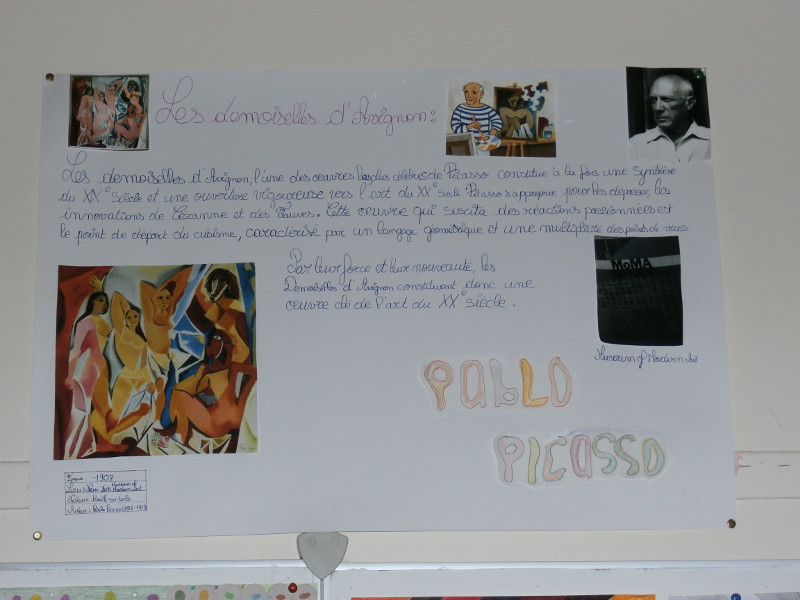 Les demoiselles d'Avignon:
Les demoiselles d'Avignon, l'une des œuvres les plus célèbres de Picasso constitue à la fois une synthèse
du XXe siècle et une ouverture vigoureuse vers l'art du XXe siècle Picasso s'approprie pour les dépasser, les
innovations de Cézanne et des Fauves. Cette œuvre qui suscita des réactions passionnées est
le point de départ du cubisme, caractérisé par un langage géométrique et une multiplicité des points de vues
Par leur force et leur nouveauté, les
Demoiselles d'Avignon constituent donc une
œuvre clé de l'art du XXe siècle.
MoMA
Museum of Modern Art
PABLO
PICASSO
Epoque: 1907
Museum of
Modern Art
Nature: Huile sur toile
Auteur: Pablo Picasso